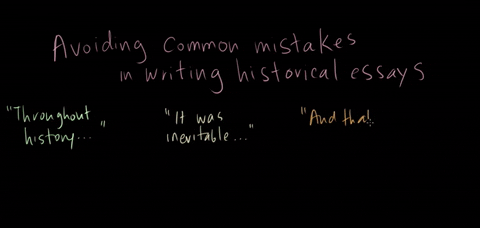 Avoiding Common mistakes
in writing historical essays
"Throughout
history..."
"It was
inevitable..."
"And that